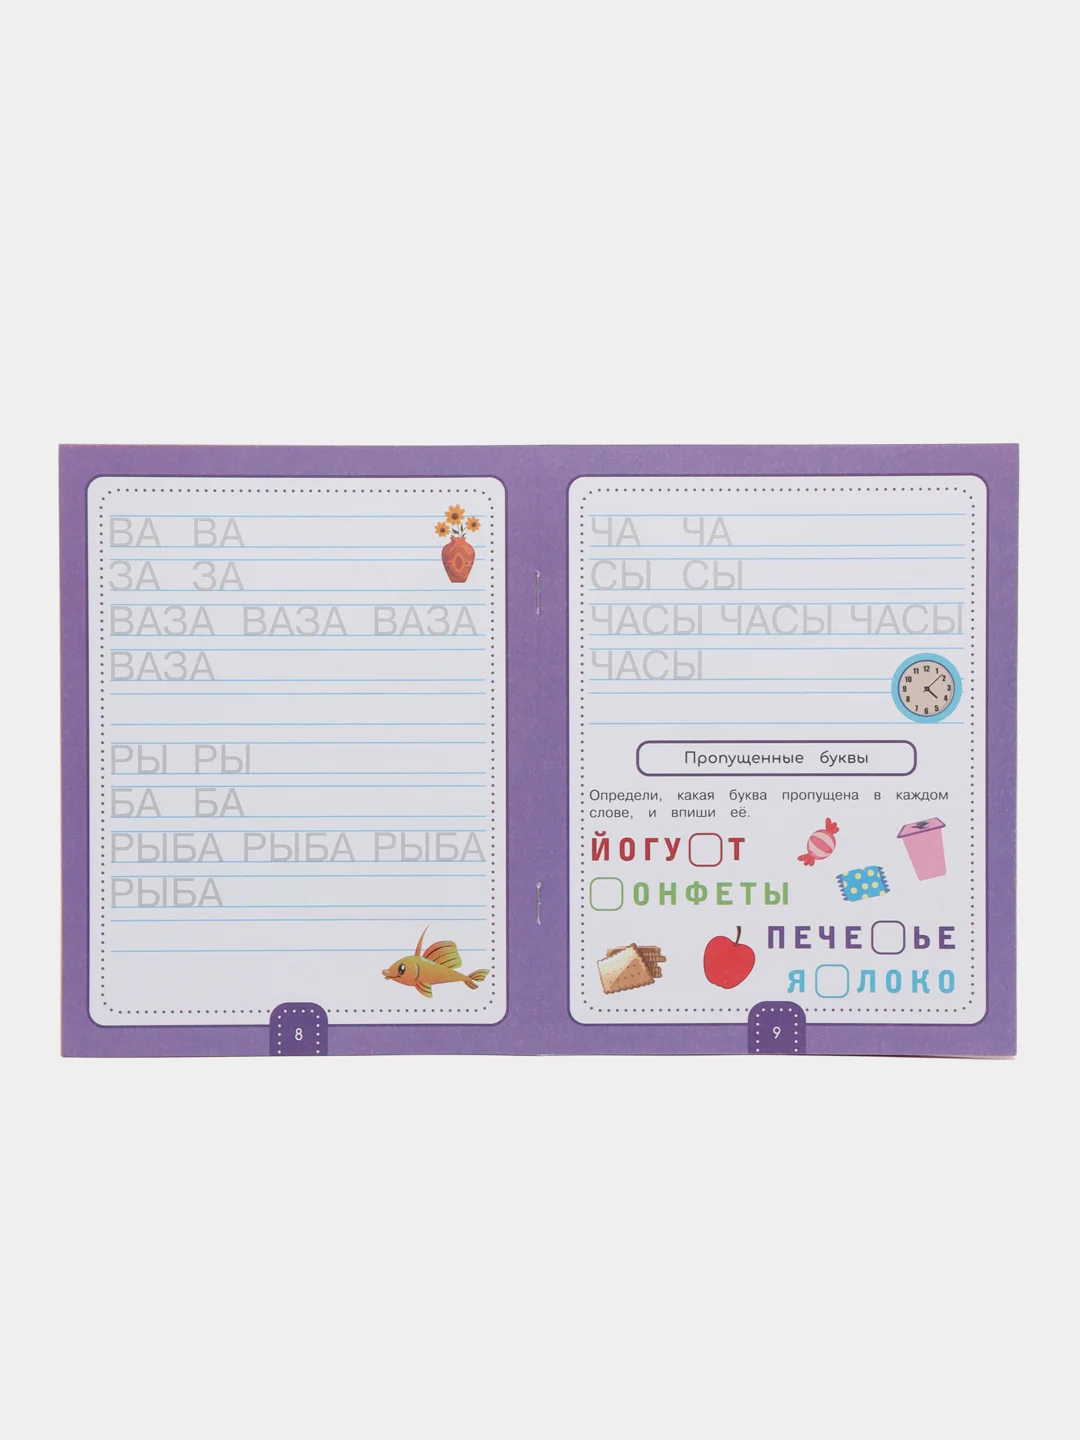 ВА ВА
ЗА ЗА
ВАЗА ВАЗА ВАЗА
ВАЗА
РЫ РЫ
БА БА
РЫБА РЫБА РЫБА
РЫБА
8
ЧА ЧА
СЫ СЫ
ЧАСЫ ЧАСЫ ЧАСЫ
ЧАСЫ
11 12 1
10 2
9 3
8 4
7 6 5
Пропущенные буквы
Определи, какая буква пропущена в каждом
слове, и впиши её.
ЙОГУ□Т
□ОНФЕТЫ
ПЕЧЕ□ЬЕ
Я□ЛОКО
9